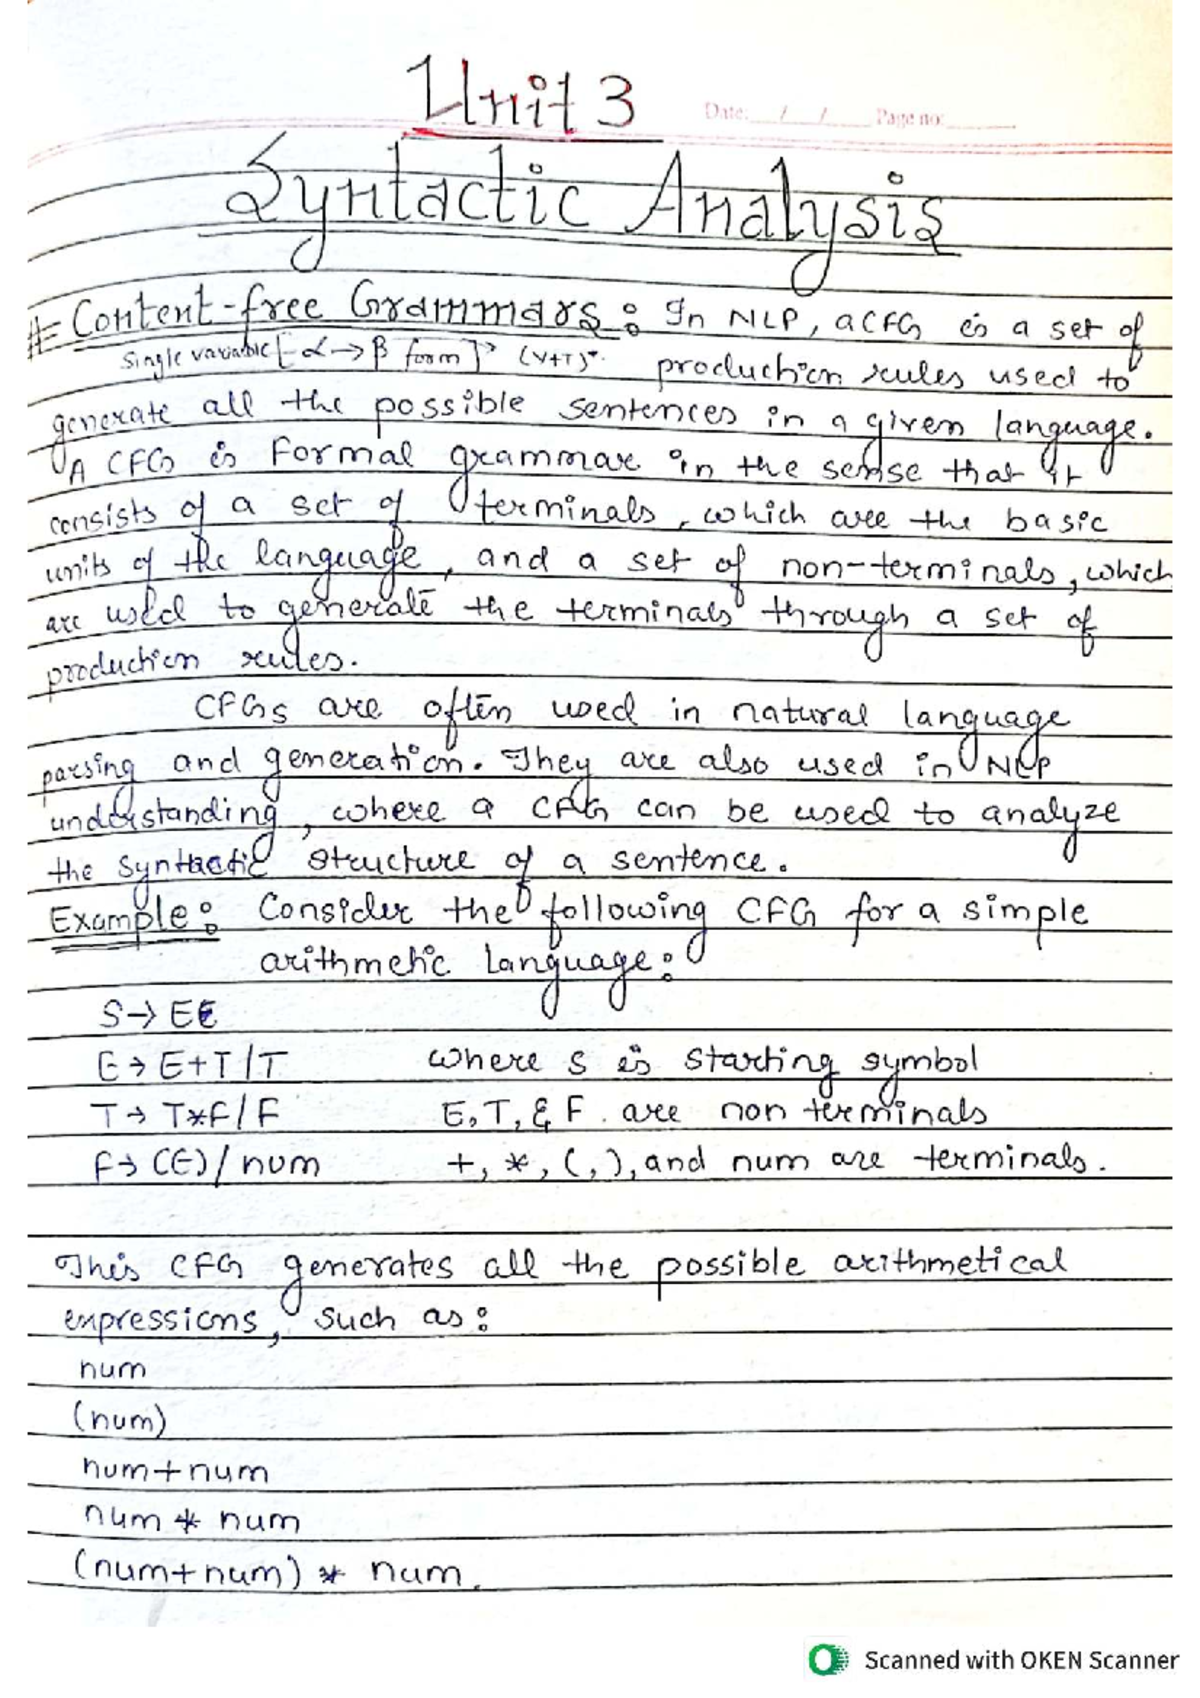 Unit 3
Date: / / Page no:
Syntactic Analysis
# Content-free Grammars : In NLP, a CFG is a set of
Single variable [ α → β form ] → (V+T)*. production rules used to
generate all the possible sentences in a given language.
A CFG is formal grammar in the sense that it
consists of a set of terminals, which are the basic
units of the language, and a set of non-terminals, which
are used to generate the terminals through a set of
production rules.
CFGs are often used in natural language
parsing and generation. They are also used in NLP
understanding, where a CFG can be used to analyze
the syntactic structure of a sentence.
Example: Consider the following CFG for a simple
arithmetic language:
S → E
E → E+T/T where S is starting symbol
T → T*F/F E, T, & F are non terminals
F → (E)/num +, *, (, ), and num are terminals.
This CFG generates all the possible arithmetical
expressions, such as:
num
(num)
num+num
num * num
(num+num) * num.
Scanned with OKEN Scanner